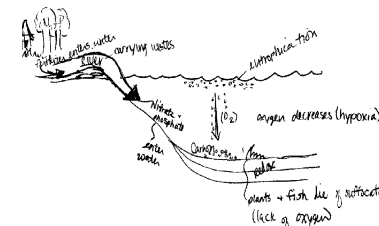 fertilizer enters water
carrying wastes
River
eutrophication
Nitrate +
phosphate
enter
water
(O₂)
oxygen decreases (hypoxia)
redox
plants + fish die of suffocat
(lack of oxygen)